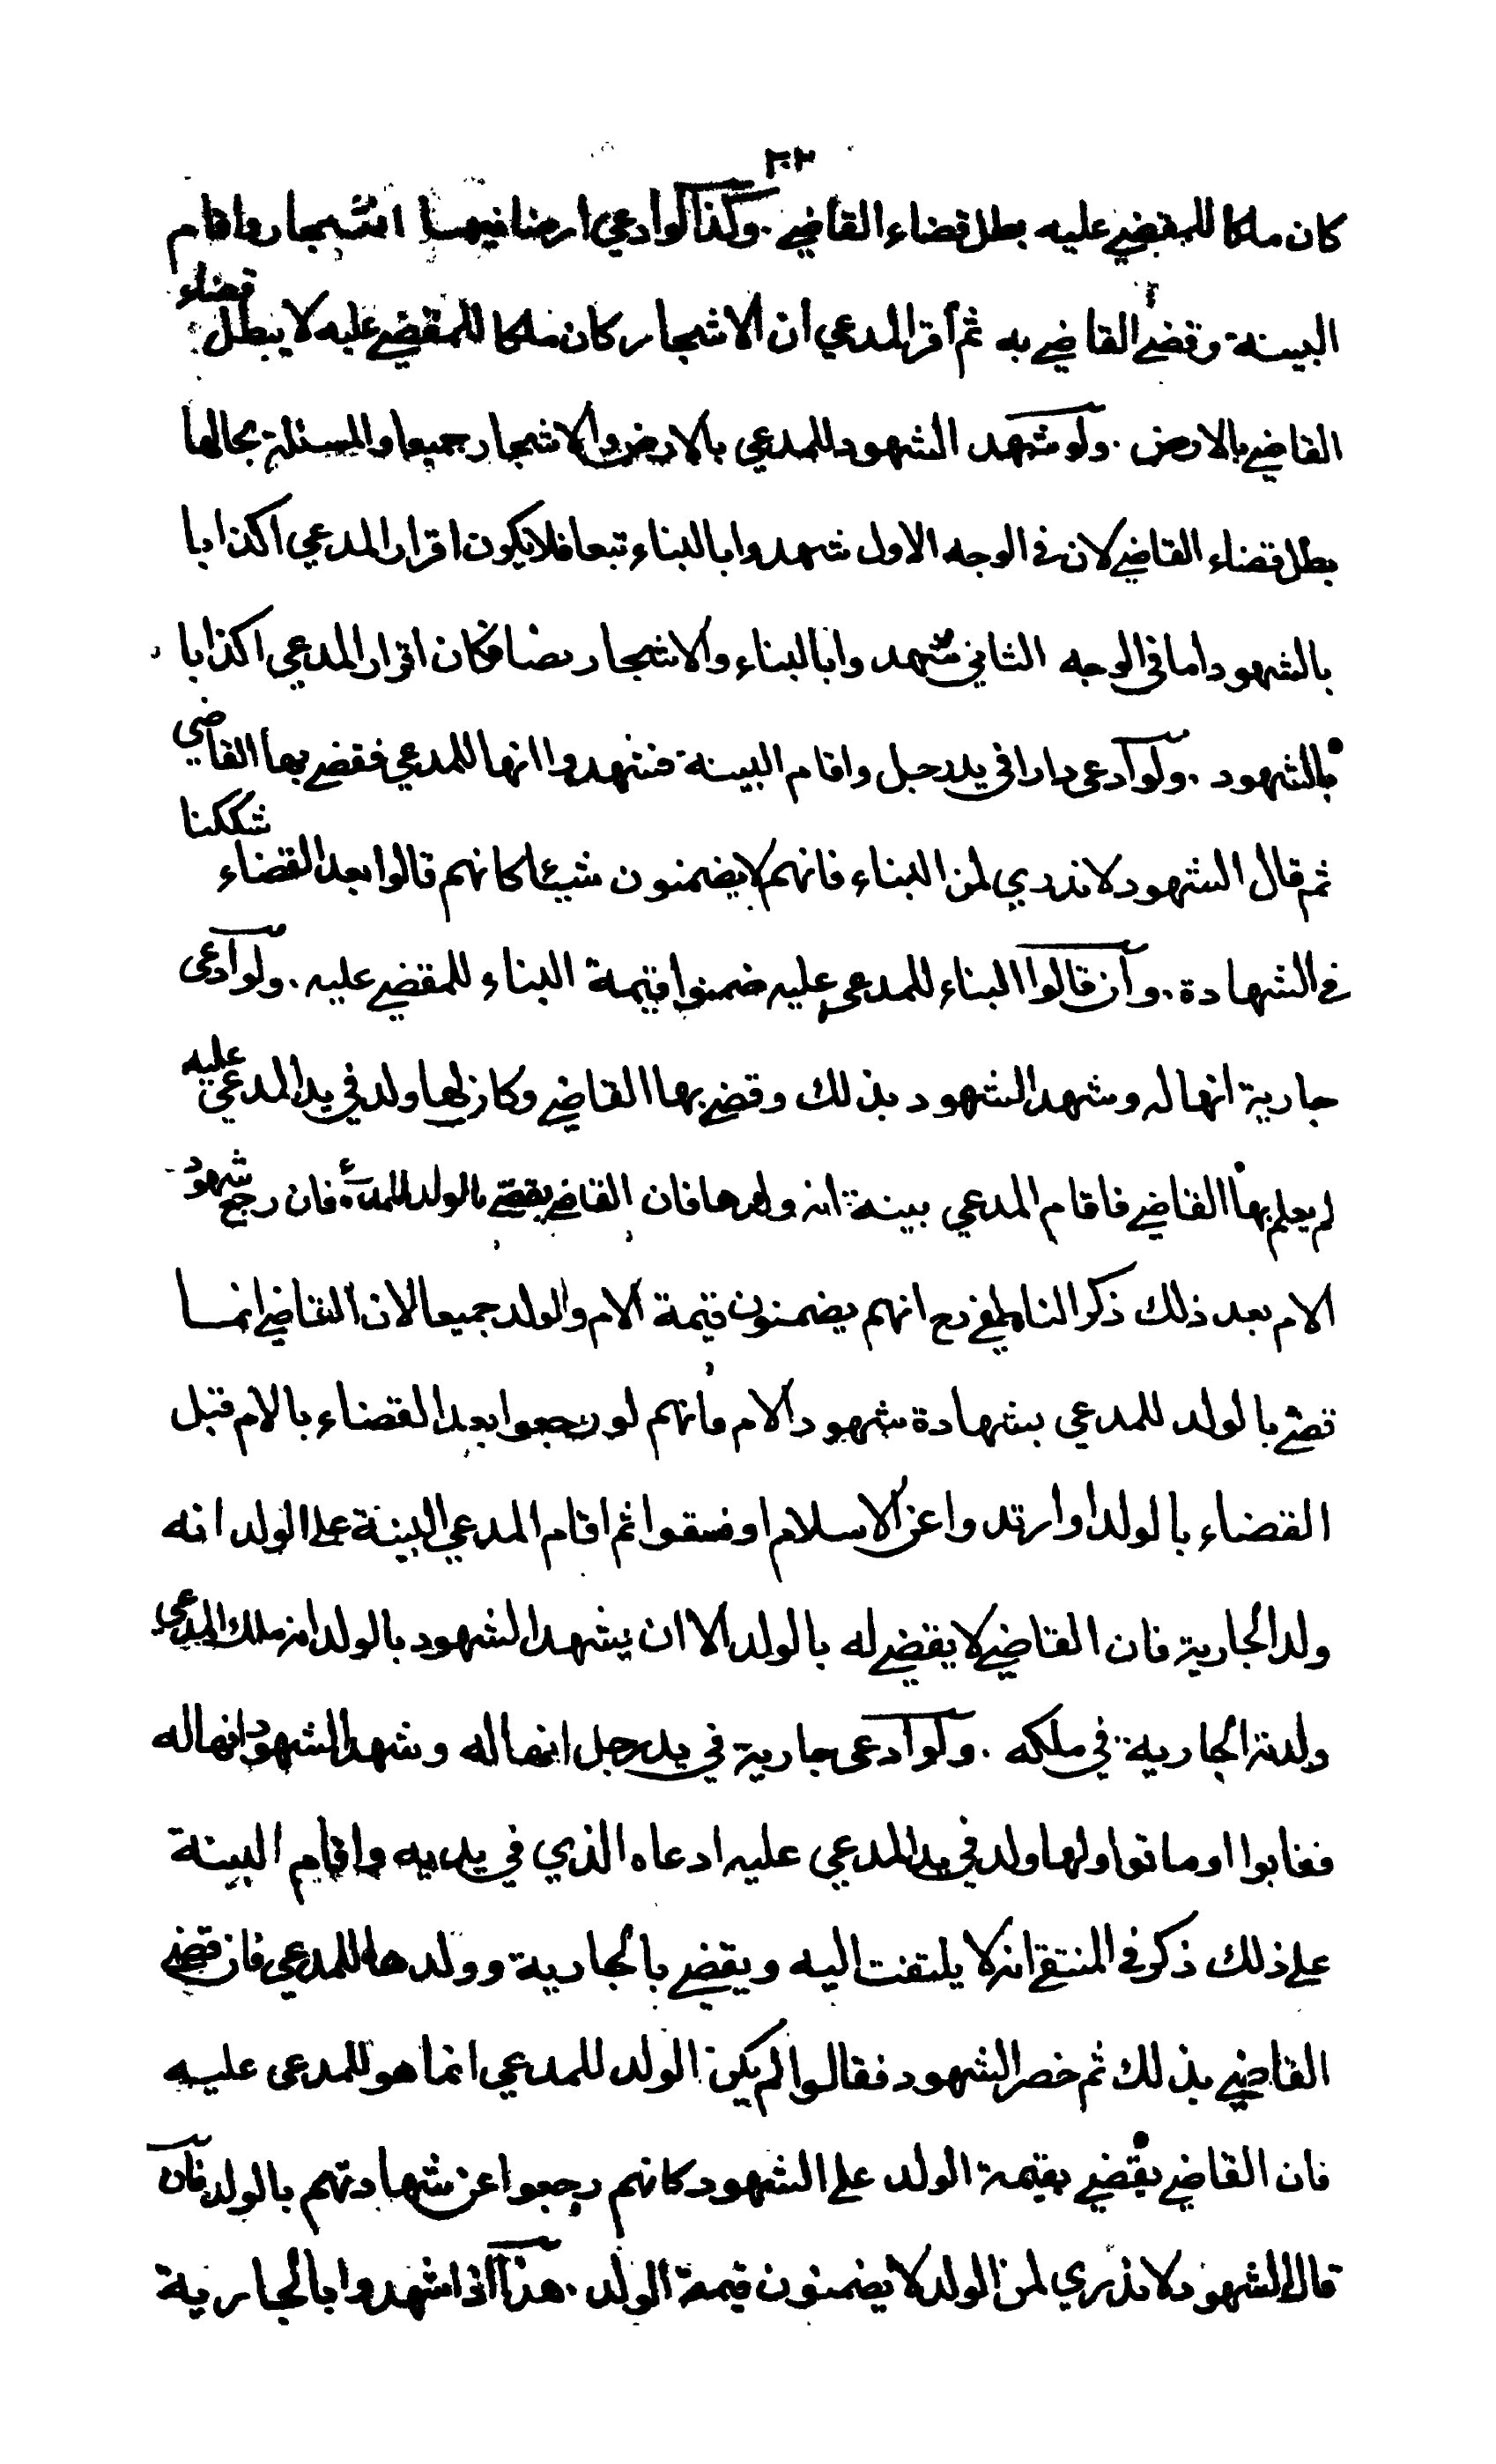 ٢٠٣
كان ملكا للمقضي عليه بطل قضاء القاضي . وكذا لو ادعى ارضا فيها اشجار واقام
البينة وقضى القاضي به ثم أقر المدعي ان الاشجار كان ملكا للمقضي عليه لا يبطل قضاء
القاضي بالارض . ولو شهد الشهود للمدعي بالارض والاشجار جميعا والمسئلة بحالها
بطل قضاء القاضي لان في الوجه الاول شهدوا بالبناء تبعا فلا يكون اقرار المدعي اكذابا
بالشهود اما في الوجه الثاني شهدوا بالبناء والاشجار نصا فكان اقرار المدعي اكذابا
بالشهود . ولو ادعى دارا في يد رجل واقام البينة فشهدوا انها للمدعي فقضى بها القاضي
ثم قال الشهود لا ندري لمن البناء فانهم لا يضمنون شيئا كانهم قالوا بعد القضاء شككنا
في الشهادة . وان قالوا البناء للمدعى عليه ضمنوا قيمة البناء للمقضي عليه . ولو ادعى
جارية انها له وشهد الشهود بذلك وقضى بها القاضي وكان لها ولد في يد المدعي عليه
لم يعلم بها القاضي فاقام المدعي بينة انه ولدها فان القاضي يقضي بالولد للمدعي فان رجع شهود
الام بعد ذلك ذكر الناطفي رح انهم يضمنون قيمة الام والولد جميعا لان القاضي انما
قضى بالولد للمدعي بشهادة شهود الام فانهم لو رجعوا بعد القضاء بالام قبل
القضاء بالولد او ارتدوا عن الاسلام او فسقوا ثم اقام المدعي البينة على الولد انه
ولد الجارية فان القاضي لا يقضي له بالولد الا ان يشهد الشهود بالولد انه ملك المدعي
ولدته الجارية في ملكه . ولو ادعى جارية في يد رجل انها له وشهد الشهود انها له
فغابوا او ماتوا ولها ولد في يد المدعي عليه ادعاه الذي في يديه واقام البينة
على ذلك ذكر في المنتقى انه لا يلتفت اليه ويقضي بالجارية وولدها للمدعي فان قضى
القاضي بذلك ثم حضر الشهود فقالوا لم يكن الولد للمدعي انما هو للمدعى عليه
فان القاضي يقضي بقيمة الولد على الشهود كانهم رجعوا عن شهادتهم بالولد فان
قال الشهود لا ندري لمن الولد لا يضمنون قيمة الولد . هذا اذا شهدوا بالجارية